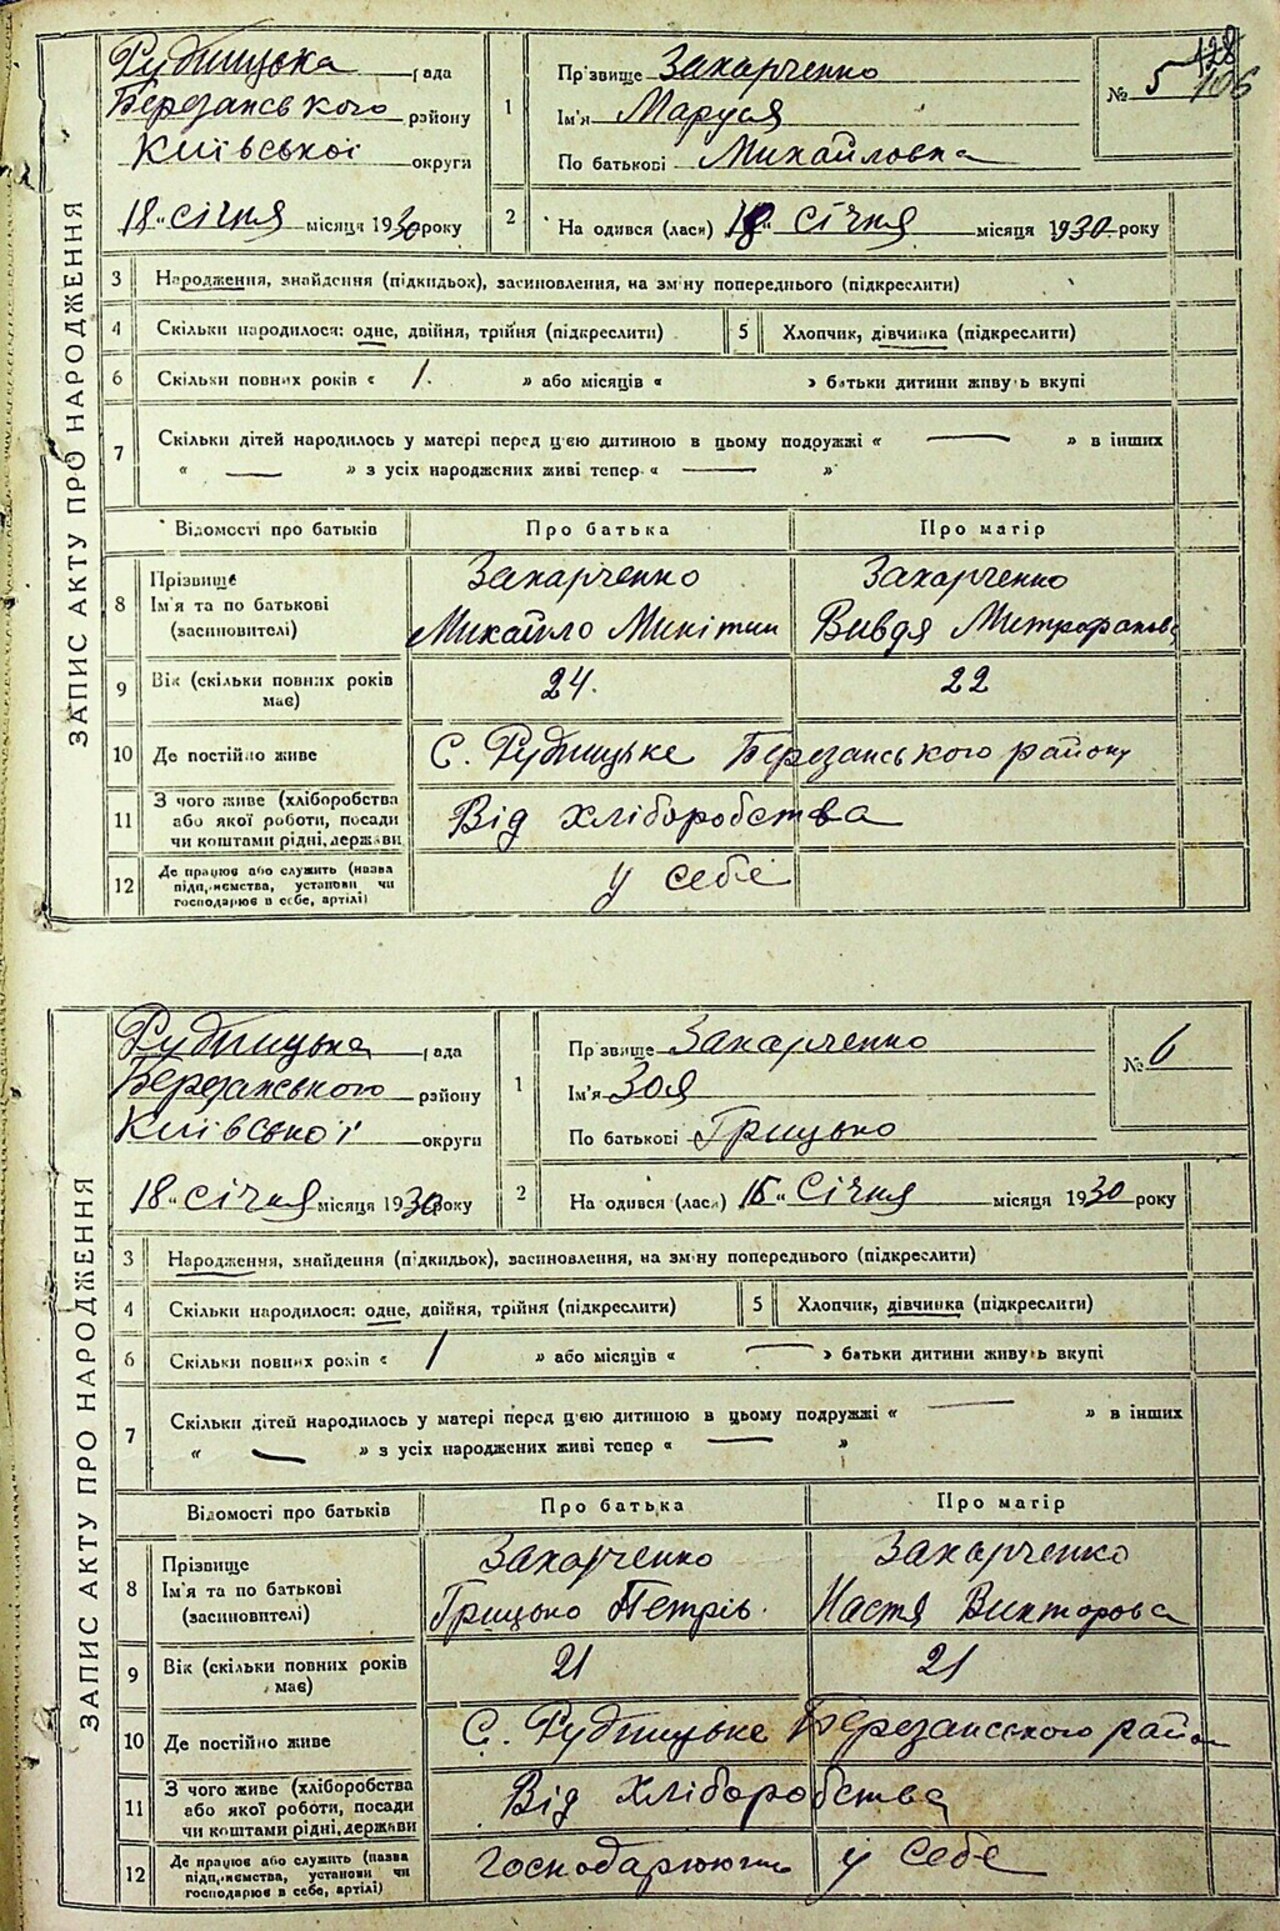 ЗАПИС АКТУ ПРО НАРОДЖЕННЯ
Рудницька рада
Березанського району
Київської округи
18 " січня місяця 1930 року
1 Прізвище Захарченко
Ім'я Маруся
По батькові Михайловна
№ 5
128
106
2 На одився (лася) 18 " січня місяця 1930 року
3 Народження, знайдення (підкидьок), засиновлення, на зміну попереднього (підкреслити)
4 Скільки народилося: одне, двійня, трійня (підкреслити) 5 Хлопчик, дівчинка (підкреслити)
6 Скільки повних років « 1. » або місяців « » батьки дитини живуть вкупі
7 Скільки дітей народилось у матері перед цією дитиною в цьому подружжі « — » в інших
« — » з усіх народжених живі тепер « — »
Відомості про батьків Про батька Про матір
8 Прізвище Захарченко Захарченко
Ім'я та по батькові
(засиновителі) Михайло Микітин Вивдя Митрофановa
9 Вік (скільки повних років має) 24. 22
10 Де постійно живе С. Рудницьке Березанського району
11 З чого живе (хліборобства
або якої роботи, посади
чи коштами рідні, держави Від хліборобства
12 Де працює або служить (назва
підприємства, установи чи
господарює в себе, артілі) у себе
ЗАПИС АКТУ ПРО НАРОДЖЕННЯ
Рудницька рада
Березанського району
Київської округи
18 " січня місяця 1930 року
1 Прізвище Захарченко
Ім'я Зоя
По батькові Грицько
№ 6
2 На одився (лася) 16 " січня місяця 1930 року
3 Народження, знайдення (підкидьок), засиновлення, на зміну попереднього (підкреслити)
4 Скільки народилося: одне, двійня, трійня (підкреслити) 5 Хлопчик, дівчинка (підкреслити)
6 Скільки повних років « 1 » або місяців « — » батьки дитини живуть вкупі
7 Скільки дітей народилось у матері перед цією дитиною в цьому подружжі « — » в інших
« — » з усіх народжених живі тепер « — »
Відомості про батьків Про батька Про матір
8 Прізвище Захарченко Захарченко
Ім'я та по батькові
(засиновителі) Грицько Петрів. Настя Викторова
9 Вік (скільки повних років має) 21 21
10 Де постійно живе С. Рудницьке Березанського район
11 З чого живе (хліборобства
або якої роботи, посади
чи коштами рідні, держави Від хліборобства
12 Де працює або служить (назва
підприємства, установи чи
господарює в себе, артілі) господарюють у себе